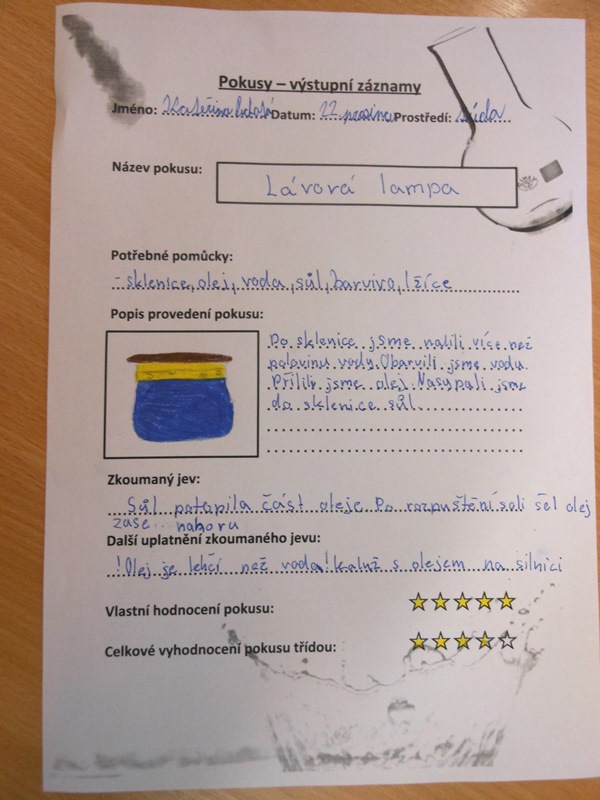 Pokusy – výstupní záznamy
Jméno: Kateřina Datum: 22. prosince Prostředí: třída
Název pokusu: Lávová lampa
Potřebné pomůcky:
- sklenice, olej, voda, sůl, barvivo, lžíce
Popis provedení pokusu:
Do sklenice jsme nalili více než
polovinu vody. Obarvili jsme vodu.
Přilili jsme olej. Nasypali jsme
do sklenice sůl.
Zkoumaný jev:
Sůl potopila část oleje. Po rozpuštění soli šel olej
zase nahoru
Další uplatnění zkoumaného jevu:
! Olej je lehčí než voda! Kaluž s olejem na silnici
Vlastní hodnocení pokusu:
Celkové vyhodnocení pokusu třídou: